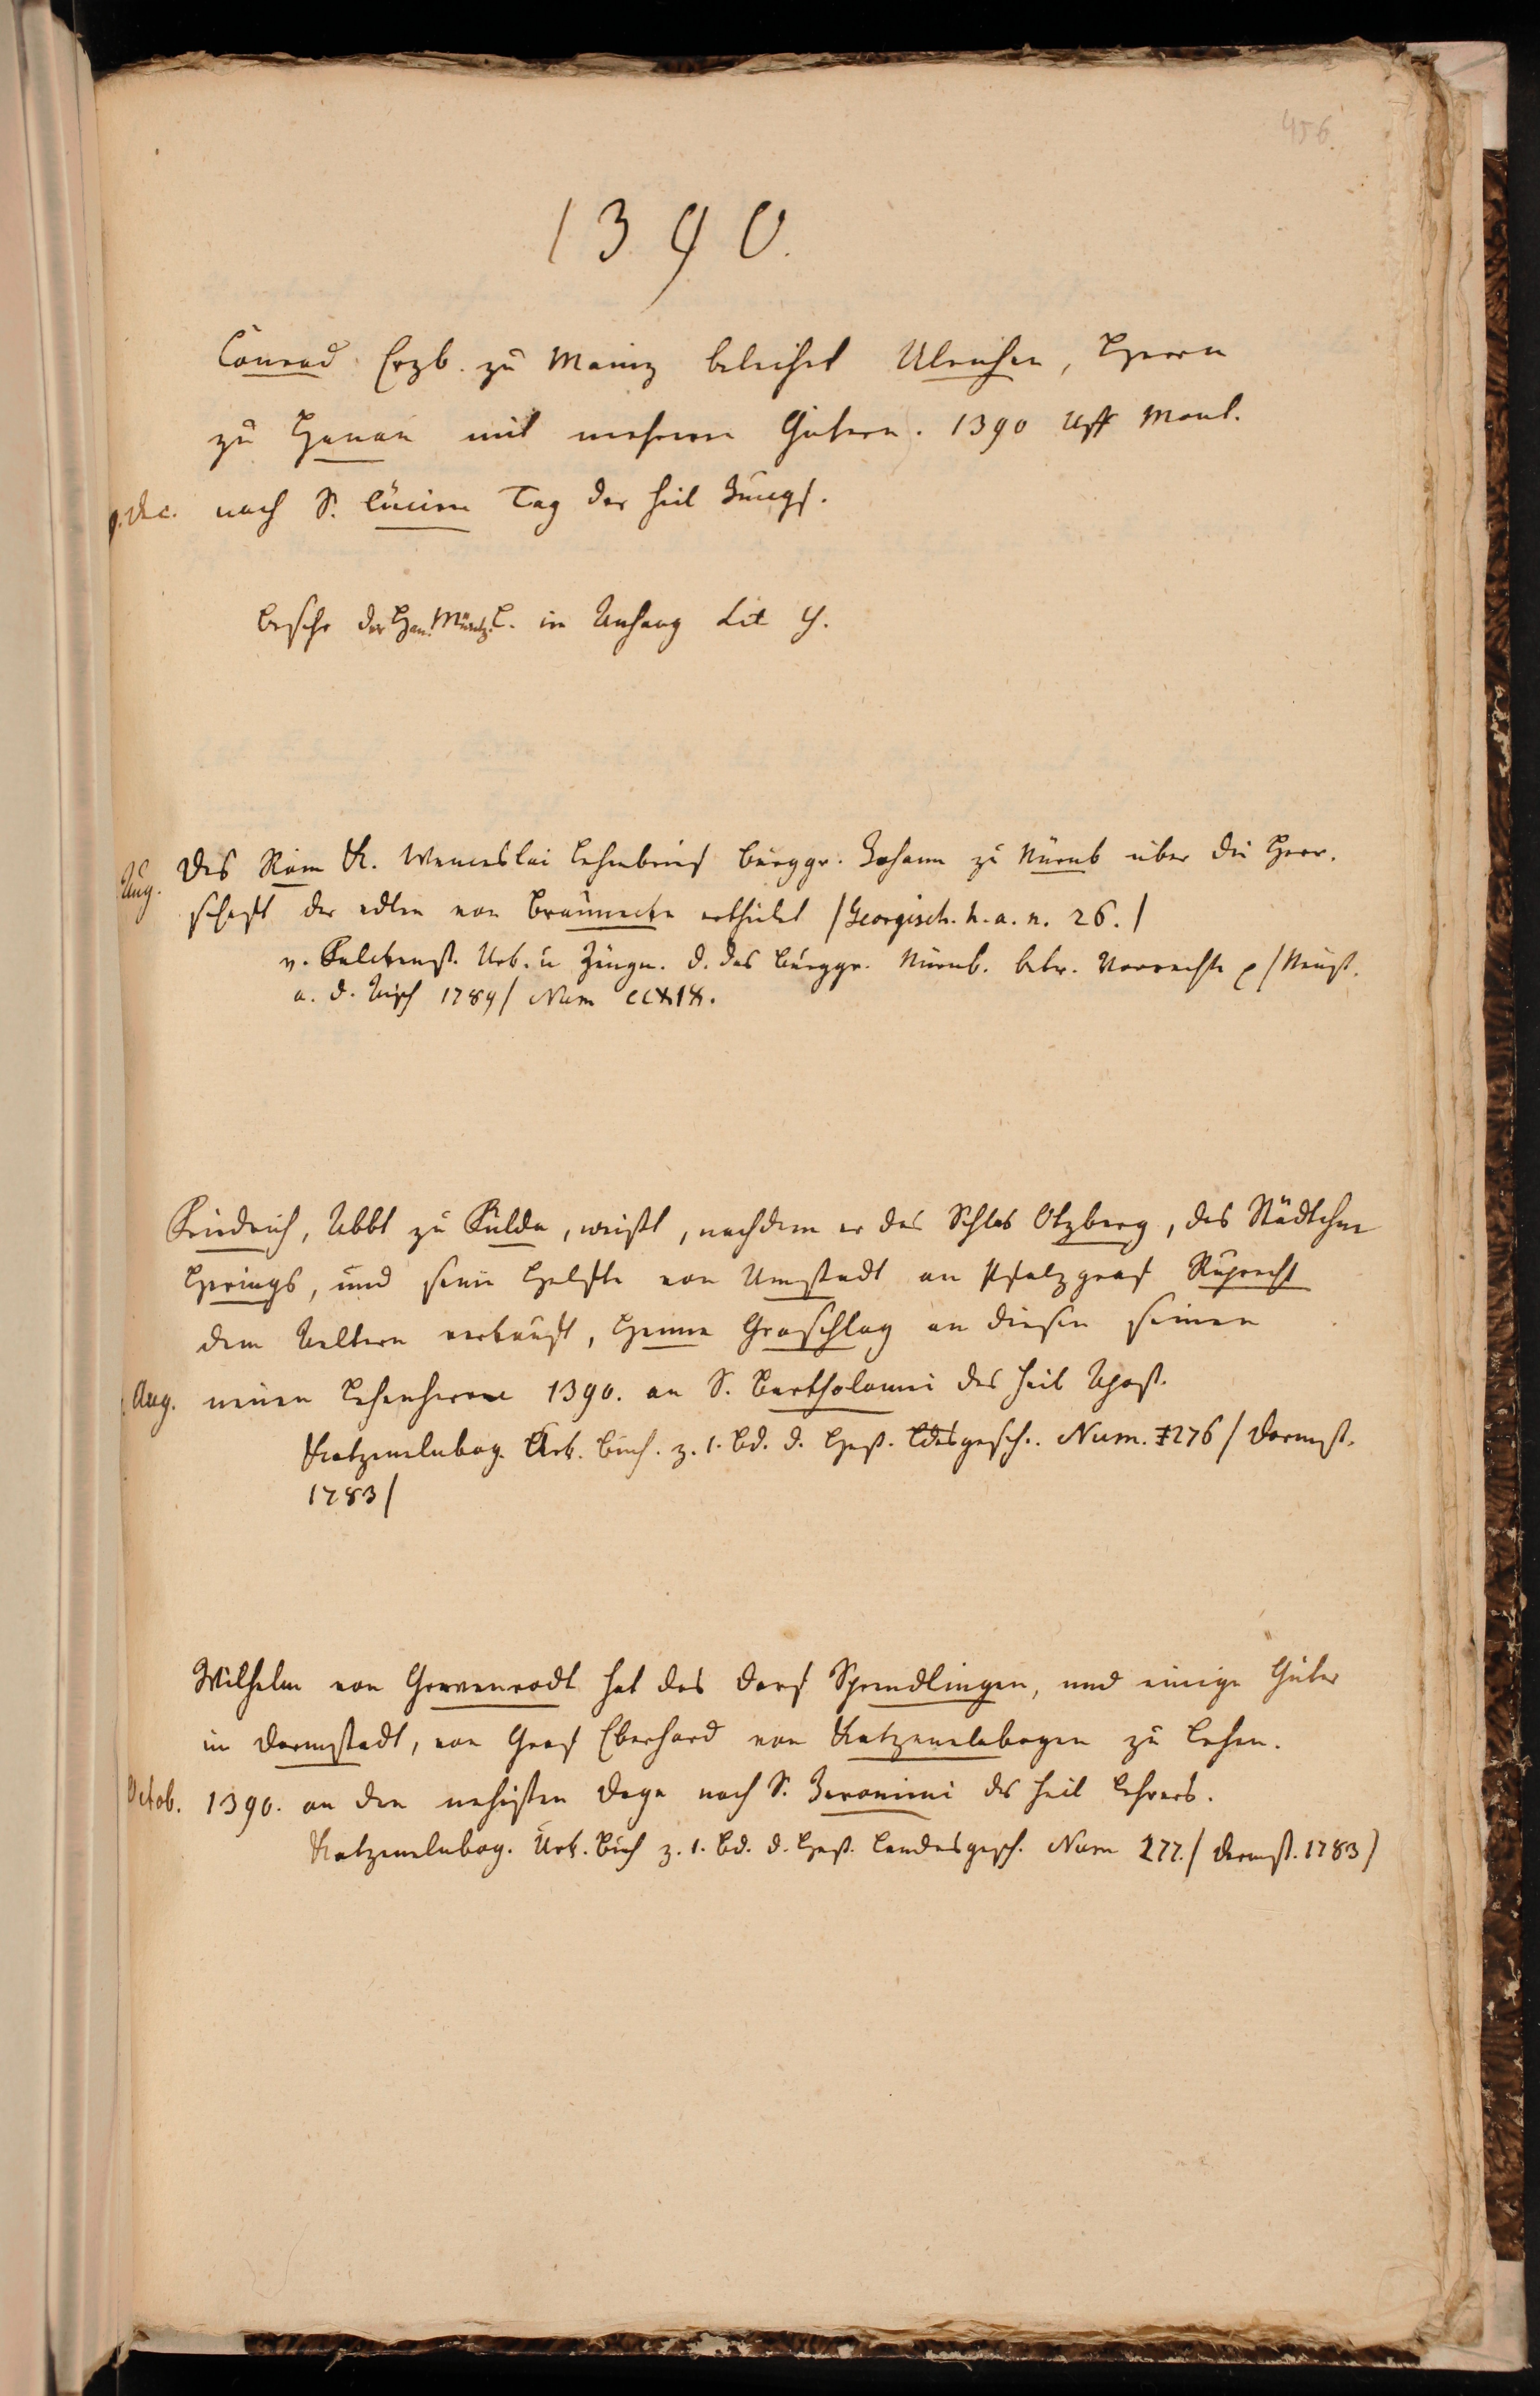 456.
1390.
Conrad Erzb. zu Mainz beleihet Ulrichen, Herrn
zu Hanau mit mehrern Gütern. 1390 uff Mont.
Dec. nach S. Lucien Tag der heil Jungf.
Beschr der Han. Münzb. L. in Anhang Lit Y.
Aug. Des Röm K. Wenceslai Lehnbrief Burggr. Johann zu Nürnb über die Herr-
schaft der edlen von Braunecke ertheilet /Georgisch. h. a. n. 26./
v. Falckenst. Urk. u Zeugn. d. das Burggr. Nürnb. betr. Vorrechte p /Neust.
a. d. Aisch 1789/ Num CCXIX.
Friedrich, Abbt zu Fulda, weißt, nachdem er das Schlos Otzberg, das Städtchen
Herings, und seine Helfte von Umstadt an Pfalzgraf Ruprecht
dem Aeltern verkauft, Henne Groschlag an diesen seinen
Aug. neuen Lehenherrn 1390. an S. Bartholomei des heil Apost.
Katzenelnbog. Urk. Buch. z. 1. Bd. d. Heß. Ldesgesch.. Num. 276 / Darmst.
1783/
Wilhelm von Gervenrodt hat das Dorf Sprendlingen, und einige Güter
in Darmstadt, von Graf Eberhard von Katzenelnbogen zu Lehen.
Octob. 1390. an den nehisten Dage nach S. Jeronimi des heil Lehrers.
Katzenelnbog. Urk. Buch z. 1. Bd. d. Heß. Landesgesch. Num 277. / Darmst. 1783)